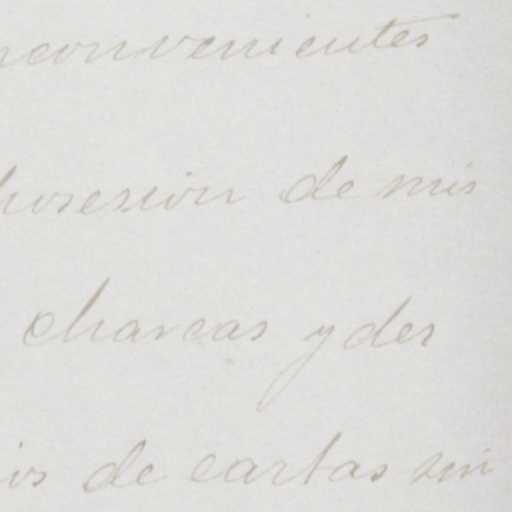 nconvenientes
posesion de mis
charcas y des
is de cartas sin